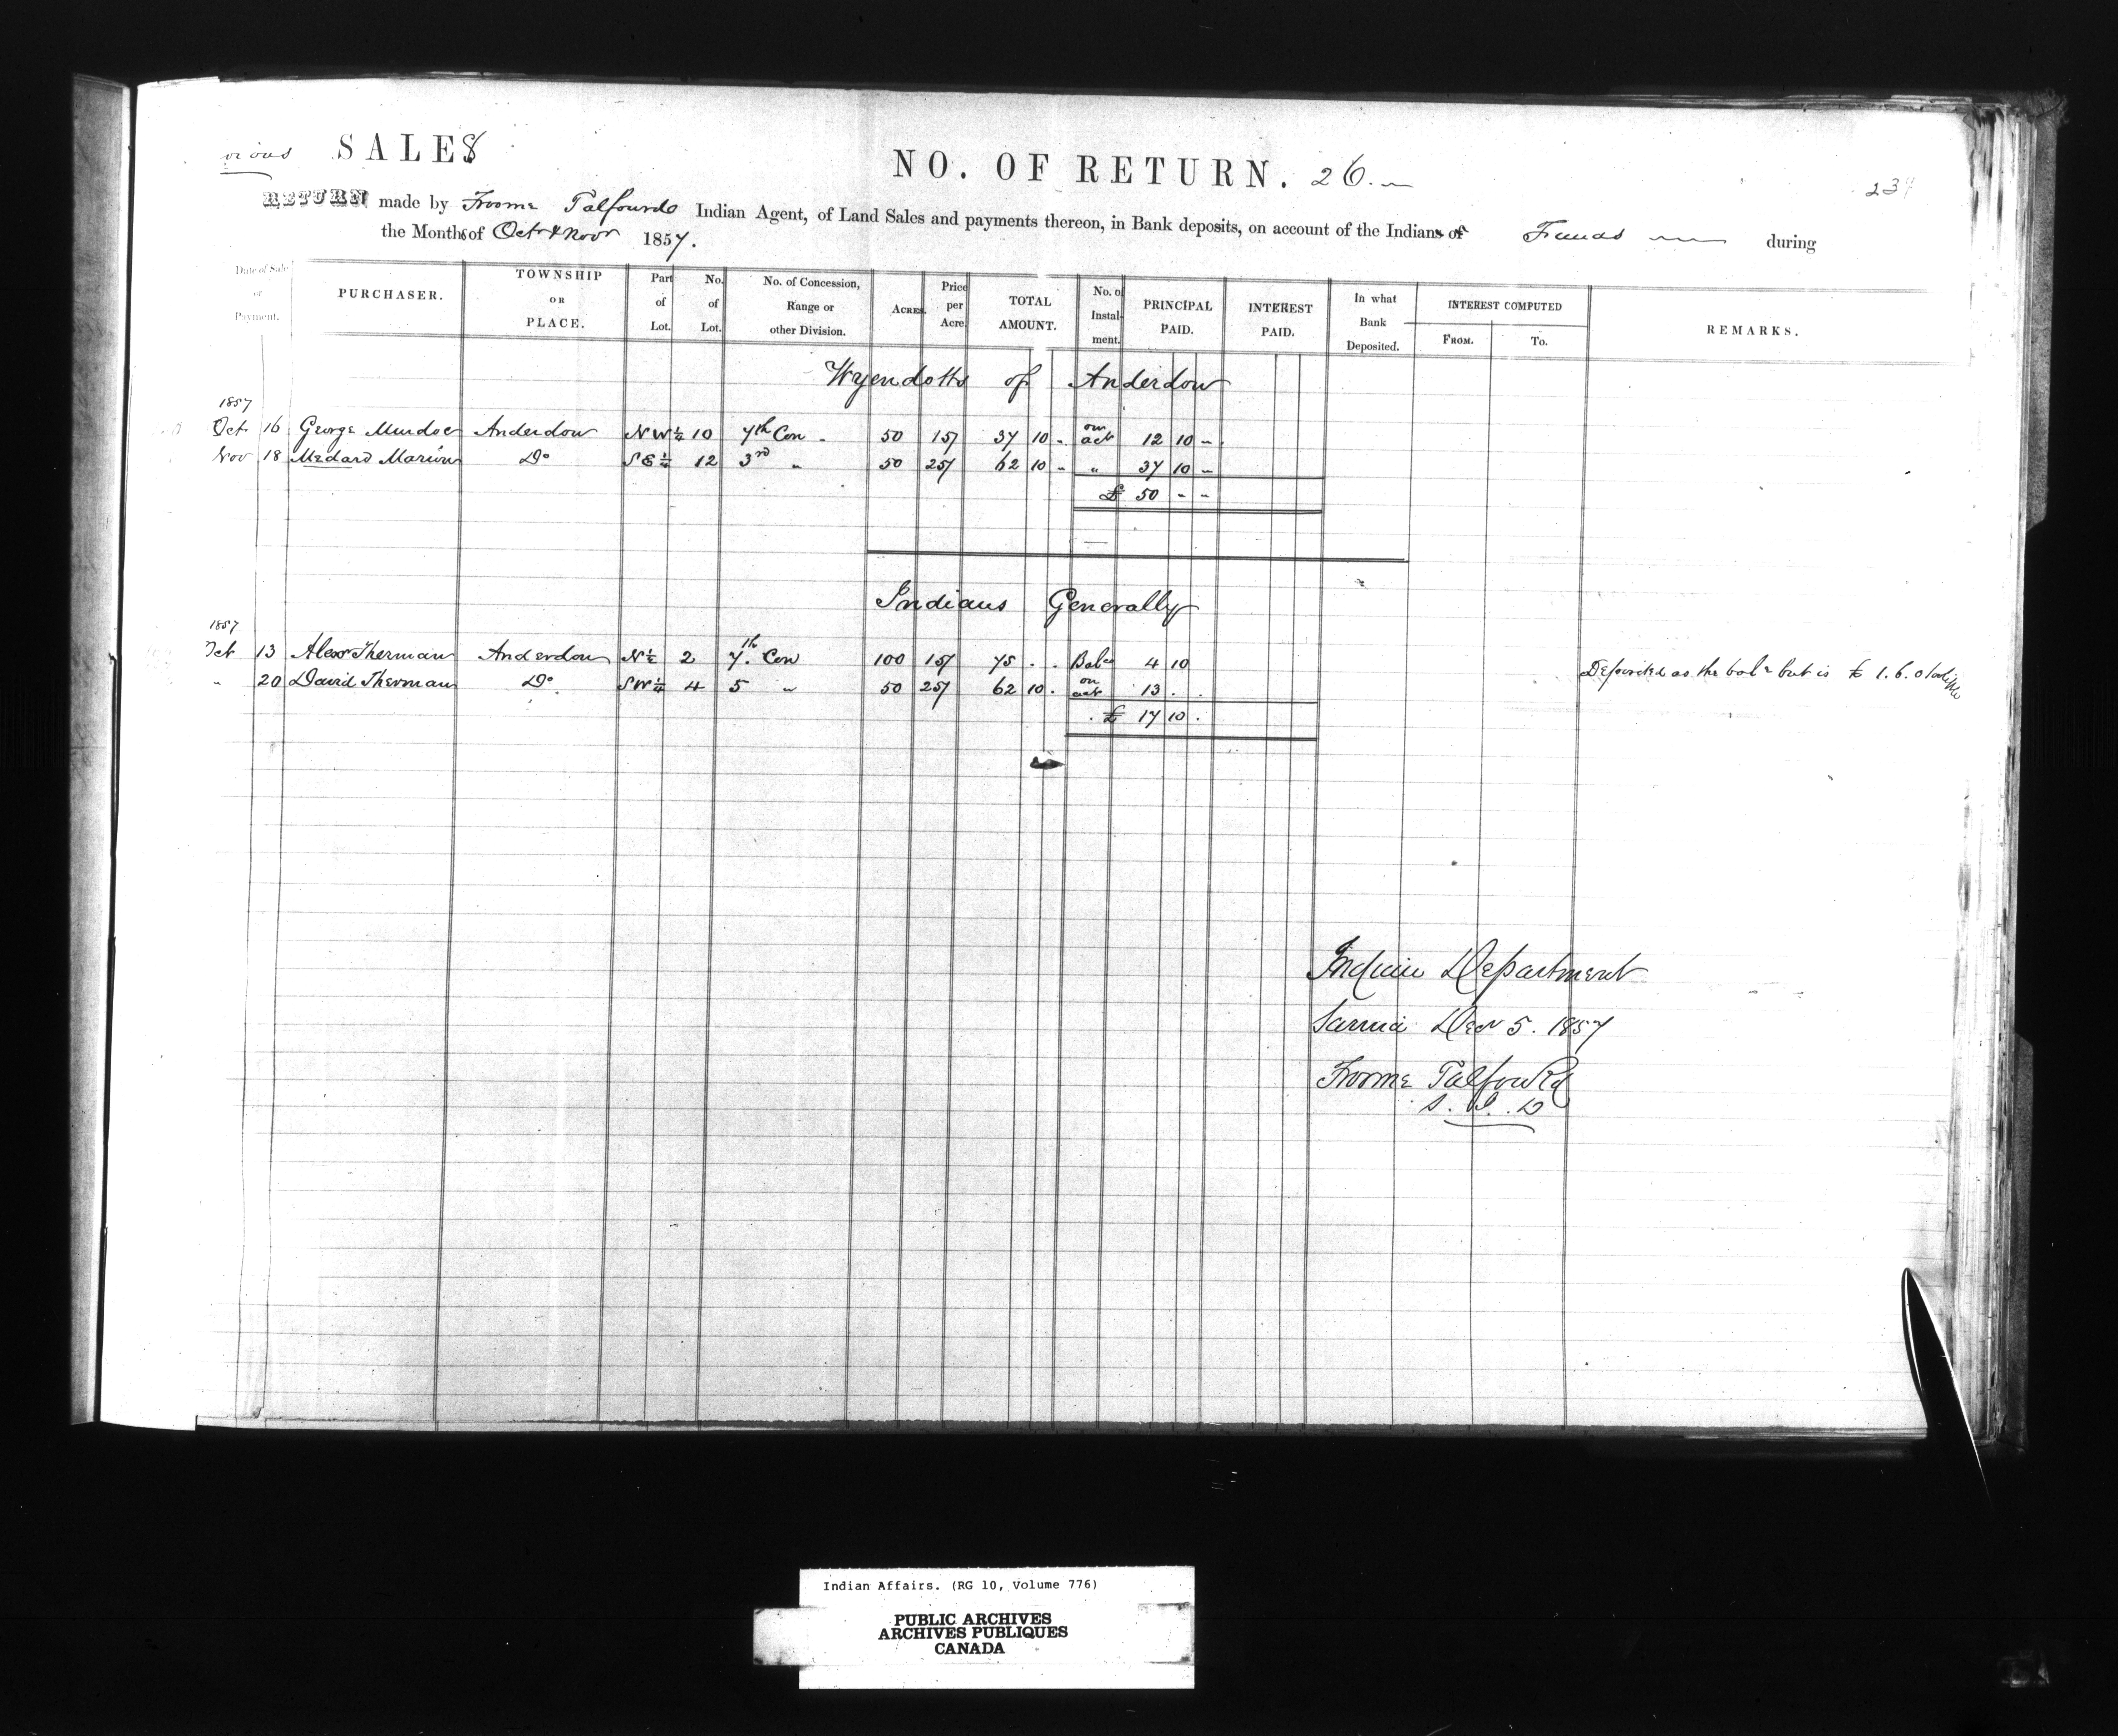 vious SALES
NO. OF RETURN. 26.
RETURN made by Froome Talfourd Indian Agent, of Land Sales and payments thereon, in Bank deposits, on account of the Indians of Funds during
the Months of Octr & Novr 1857.
Date of Sale or Payment. PURCHASER. TOWNSHIP OR PLACE. Part of Lot. No. of Lot. No. of Concession, Range or other Division. ACRES. Price per Acre. TOTAL AMOUNT. No. of Instalment. PRINCIPAL PAID. INTEREST PAID. In what Bank Deposited. INTEREST COMPUTED FROM. To. REMARKS.
Wyendotts of Anderdon
1857
Oct 16 George Murdoc Anderdon NW 1/4 10 7th Con 50 15/ 37 10 - on act 12 10 -
Nov 18 Medard Marion Do SE 1/4 12 3rd " 50 25/ 62 10 - " 37 10 -
£ 50 - -
Indians Generally
1857
Oct 13 Alexr Sherman Anderdon N 1/2 2 7th Con 100 15/ 75 . . Balce 4 10 Deposited as the balce but is £ 1.6.0
" 20 David Sherman Do SW 1/4 4 5 " 50 25/ 62 10 . on act 13 . .
£ 17 10 .
Indian Department
Sarnia Decr 5. 1857
Froome Talfourd
S. I. D
Indian Affairs. (RG 10, Volume 776)
PUBLIC ARCHIVES
ARCHIVES PUBLIQUES
CANADA